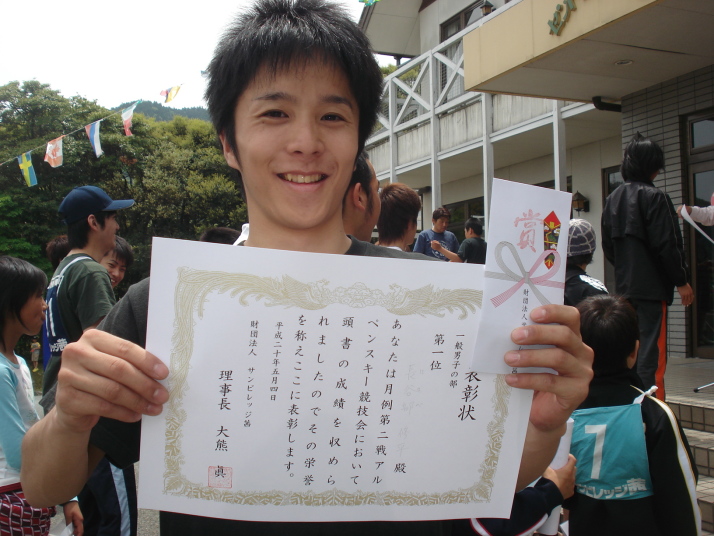 表彰状
一般男子の部
第一位
殿
あなたは月例第二戦アル
ペンスキー競技会において
頭書の成績を収めら
れましたのでその栄誉
を称えここに表彰します。
平成二十年五月四日
財団法人 サンビレッジ茜
理事長 大熊 眞
賞
財団法人
1
サンビレッジ茜